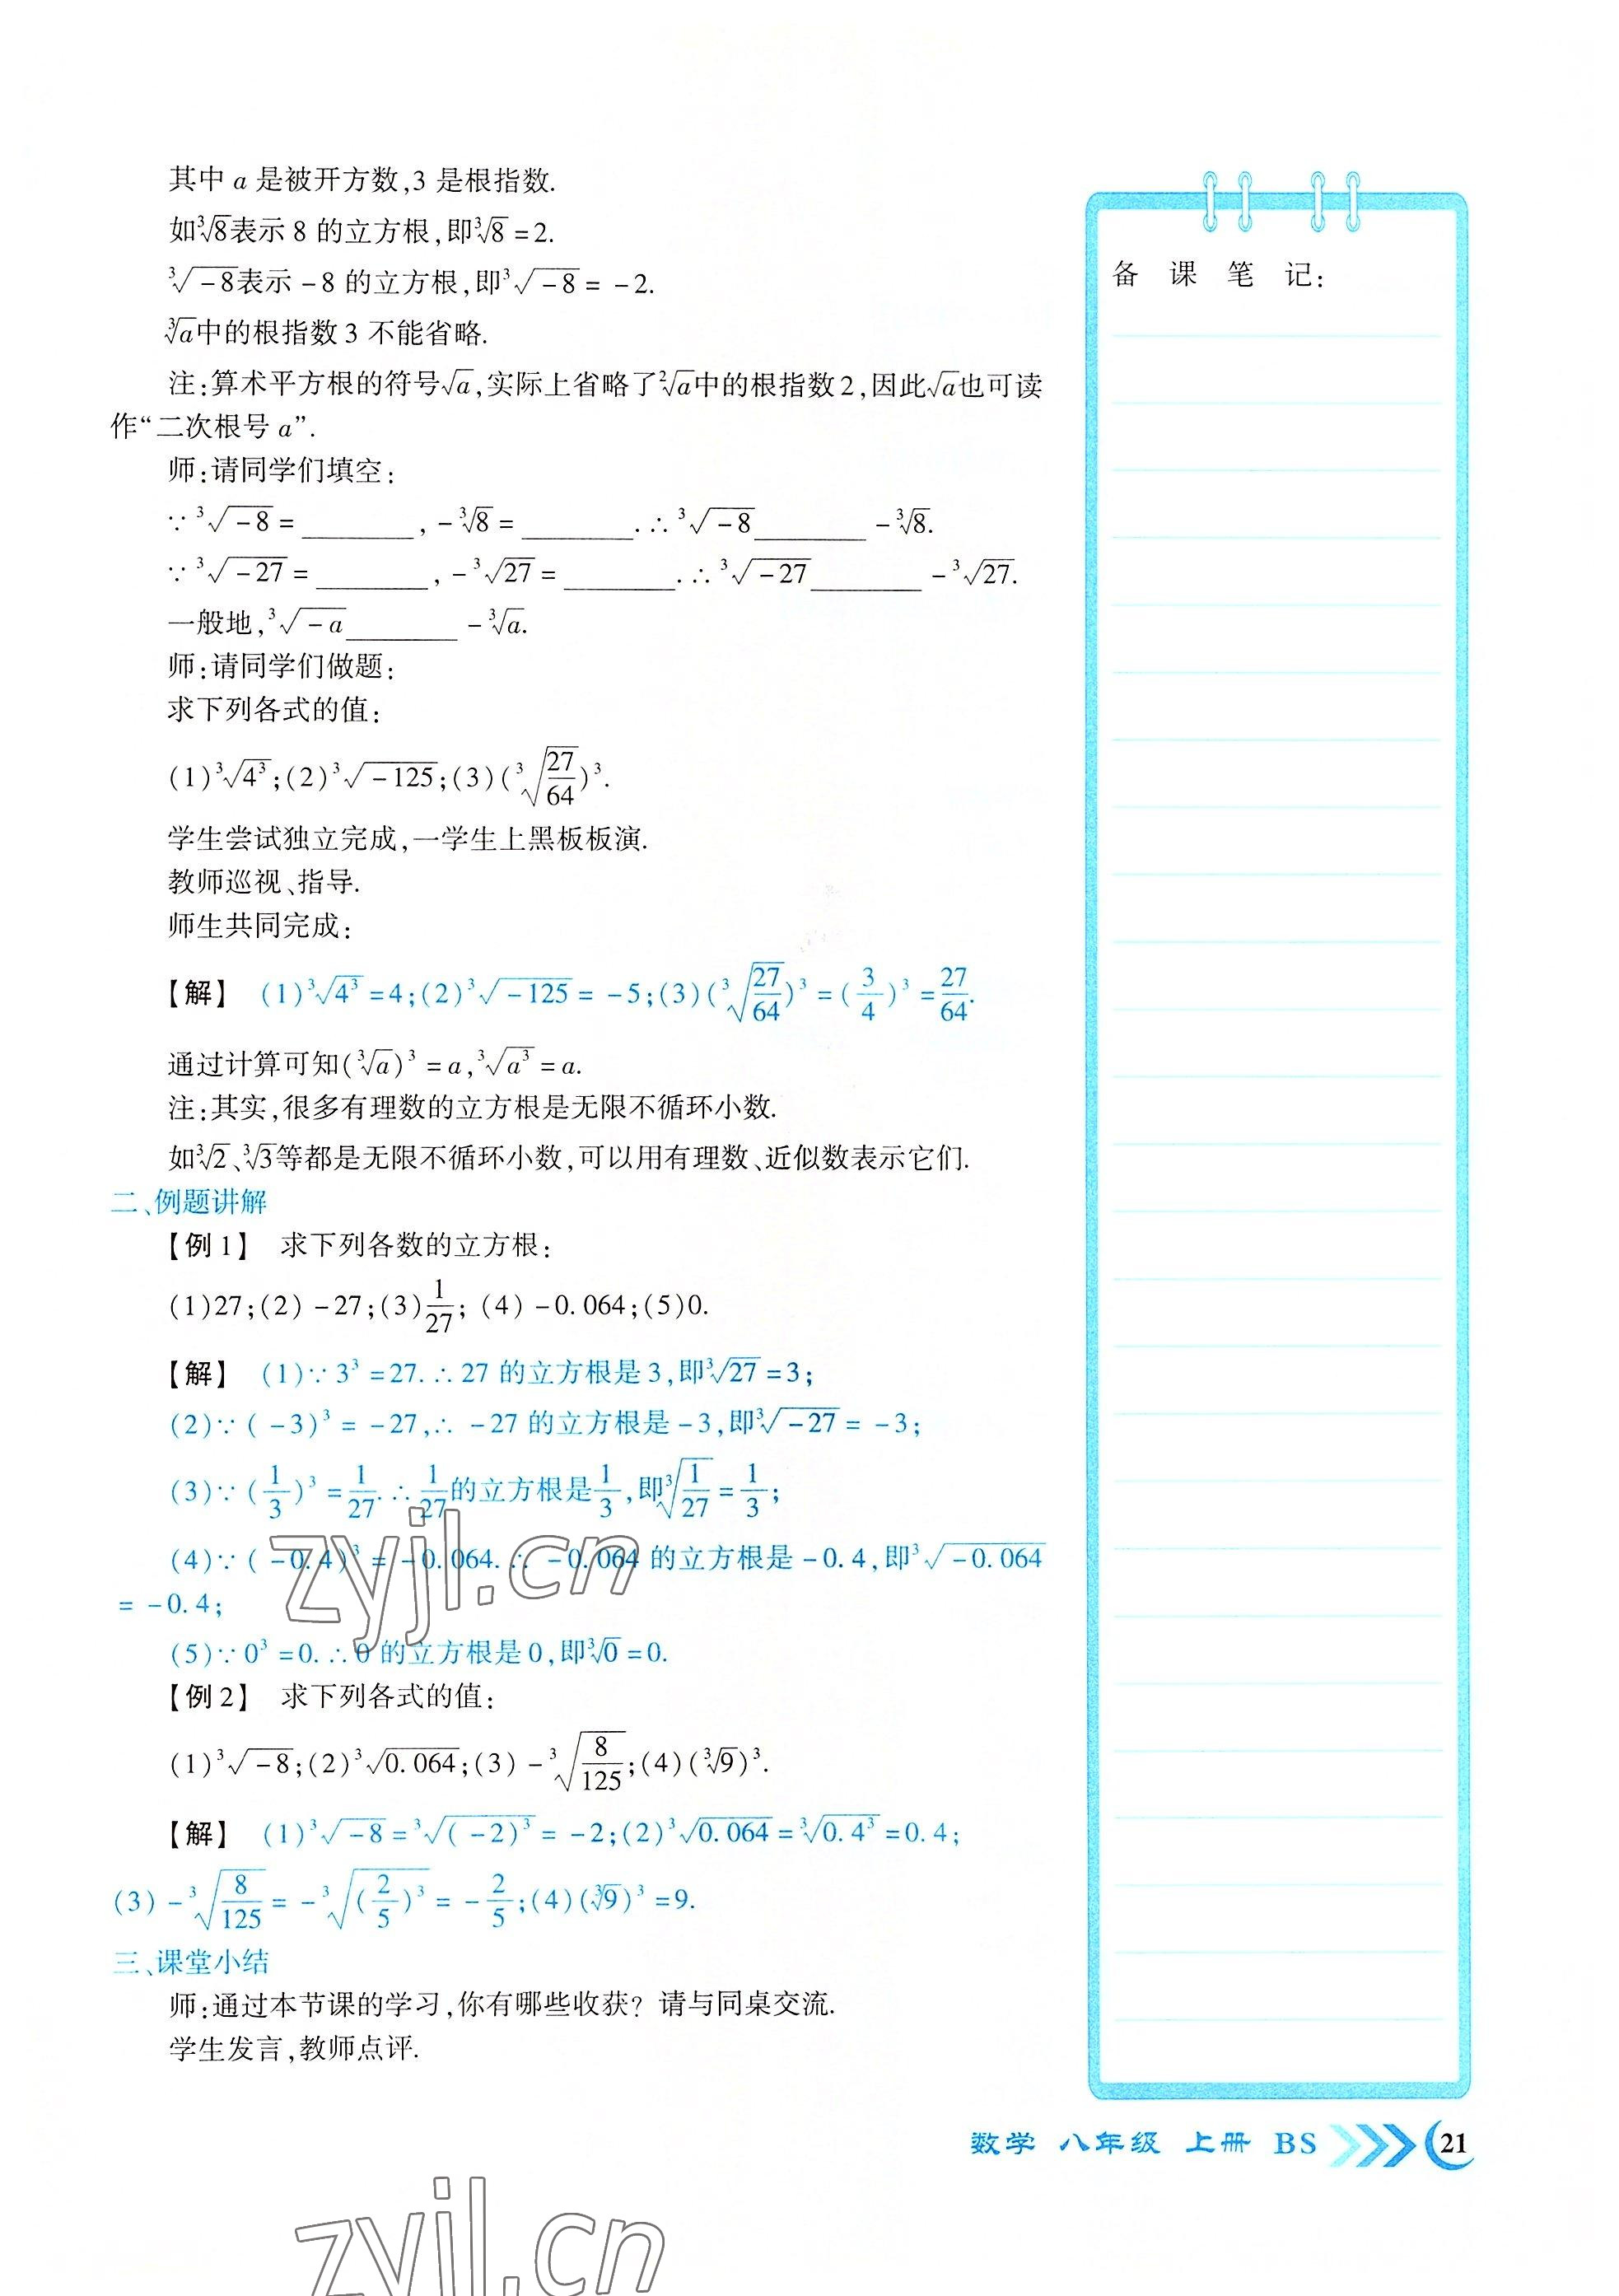 其中 a 是被开方数,3 是根指数.
如∛8表示 8 的立方根,即∛8=2.
∛(-8)表示-8 的立方根,即∛(-8)=-2.
∛a中的根指数 3 不能省略.
注:算术平方根的符号√a,实际上省略了²√a中的根指数 2,因此√a也可读
作“二次根号 a”.
师:请同学们填空:
∵∛(-8)=________,-∛8=________.∴∛(-8)________-∛8.
∵∛(-27)=________,-∛27=________.∴∛(-27)________-∛27.
一般地,∛(-a)________-∛a.
师:请同学们做题:
求下列各式的值:
(1)∛(4³);(2)∛(-125);(3)(∛(27/64))³.
学生尝试独立完成,一学生上黑板板演.
教师巡视、指导.
师生共同完成:
【解】 (1)∛(4³)=4;(2)∛(-125)=-5;(3)(∛(27/64))³=(3/4)³=27/64.
通过计算可知(∛a)³=a,∛(a³)=a.
注:其实,很多有理数的立方根是无限不循环小数.
如∛2、∛3等都是无限不循环小数,可以用有理数、近似数表示它们.
二、例题讲解
【例 1】 求下列各数的立方根:
(1)27;(2)-27;(3)1/27;(4)-0.064;(5)0.
【解】 (1)∵3³=27.∴27 的立方根是 3,即∛27=3;
(2)∵(-3)³=-27,∴-27 的立方根是-3,即∛(-27)=-3;
(3)∵(1/3)³=1/27.∴1/27的立方根是1/3,即∛(1/27)=1/3;
(4)∵(-0.4)³=-0.064.∴-0.064 的立方根是-0.4,即∛(-0.064)
=-0.4;
(5)∵0³=0.∴0 的立方根是 0,即∛0=0.
【例 2】 求下列各式的值:
(1)∛(-8);(2)∛0.064;(3)-∛(8/125);(4)(∛9)³.
【解】 (1)∛(-8)=∛((-2)³)=-2;(2)∛0.064=∛(0.4³)=0.4;
(3)-∛(8/125)=-∛((2/5)³)=-2/5;(4)(∛9)³=9.
三、课堂小结
师:通过本节课的学习,你有哪些收获?请与同桌交流.
学生发言,教师点评.
备 课 笔 记:
数学 八年级 上册 BS 21
zyjl.cn
zyjl.cn